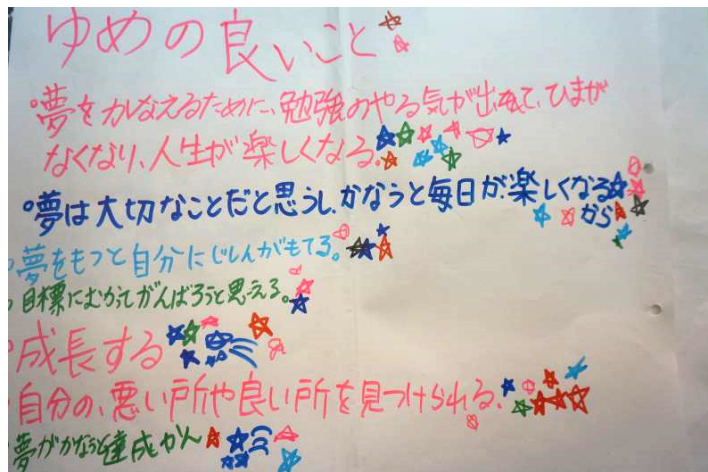 ゆめの良いこと
夢をかなえるために、勉強のやる気が出て、ひまが
なくなり、人生が楽しくなる。
夢は大切なことだと思うし、かなうと毎日が楽しくなる
から
夢をもつと自分にじしんがもてる。
目標にむかってがんばろうと思える。
成長する
自分の、悪い所や良い所を見つけられる、
夢がかなうと達成かん